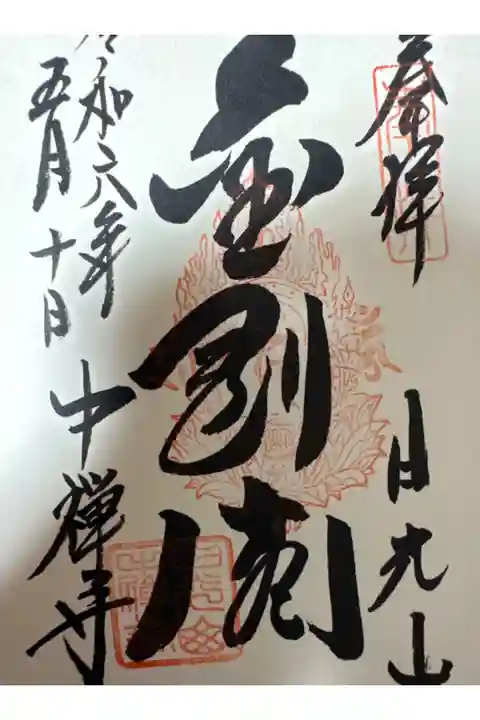 奉拝
日光山
金剛
令和六年
五月十日
中禅寺